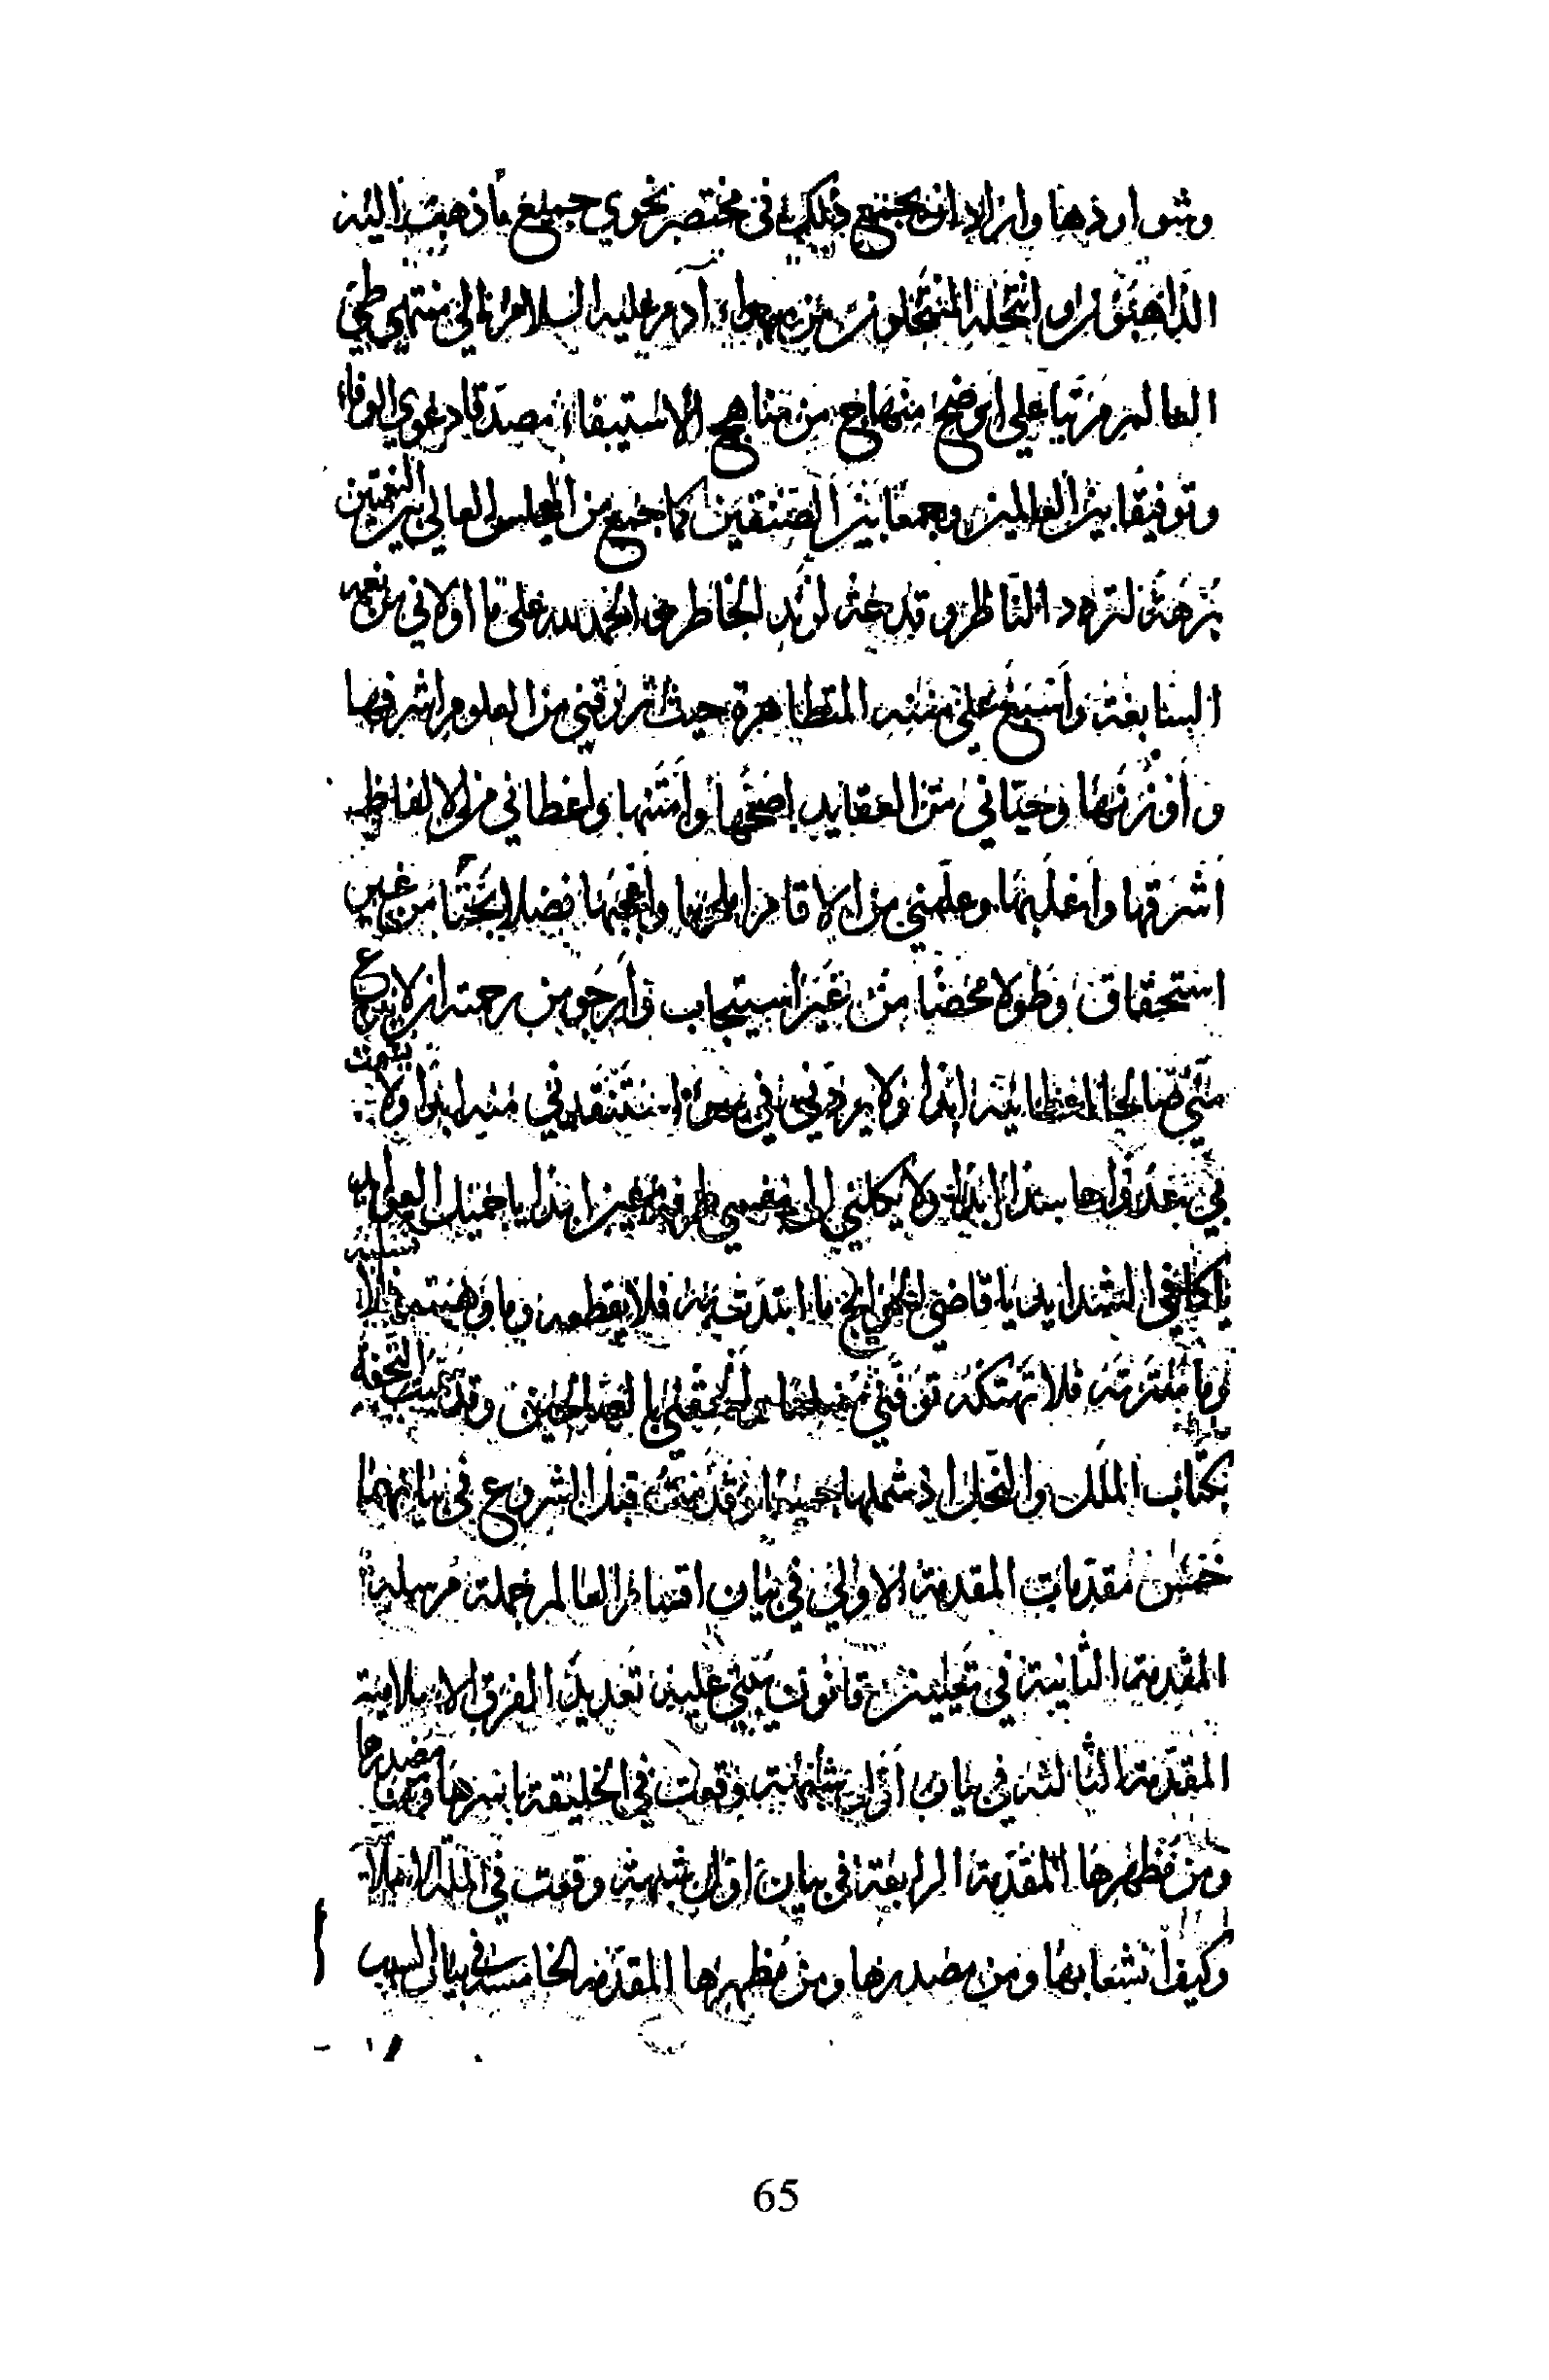 وشواردها واراد ان يجتمع ذلك في مختصر يحوي جميع ما ذهب اليه
الذاهبون او انتحله المنتحلون من مهبط آدم عليه السلام الى منتهى طي
العالم مرتبا على اوضح منهاج من مناهج الاستيفاء مصدقا دعوى الوفاء
وتوفيقا بين العالمين وجمعا بين الصنفين كما جمع من المجلس العالي بين النعمتين
نزهة الناظر و الخاطر الحمد لله على ما اولاني من نعمه
السابغة واسبغ علي مننه المتظاهرة حيث رزقني من العلوم اشرفها
وأوزنها وحباني من العقايد اصحها وامتنها واعطاني من الالفاظ
اشرقها واعذبها وعلمني من الاقلام واعجبها فضلا بحتا من غير
استحقاق وطولا محضا من غير استيجاب وارجو من رحمته ان لا ينزع
مني صالحا اعطانيه ابدا ولا يردني في سوء استنقذني منه ابدا ولا يشمت
بي عدوا حاسدا ابدا ولا يكلني الى نفسي طرفة عين ابدا يا
يا كافي الشدايد يا قاضي الحوايج ما ابتدئت به فلا تقطعه وما وهبته فلا تسلبه
وما سترته فلا تهتكه توفني مسلما والحقني بالصالحين وقد سميت التحفة
بكتاب الملل والنحل اذ شملها جميعا وقدمت قبل الشروع في بيانهما
خمس مقدمات المقدمة الاولى في بيان اقسام العالم جملة مرسلة
المقدمة الثانية في تعيين قانون يبتني عليه تعديل الفرق الاسلامية
المقدمة الثالثة في بيان اول شبهة وقعت في الخليقة باسرها ومن مصدرها
ومن مظهرها المقدمة الرابعة في بيان اول شبهة وقعت في الملة الاسلامية
وكيف انشعابها ومن مصدرها ومن مظهرها المقدمة الخامسة في بيان السبب
65